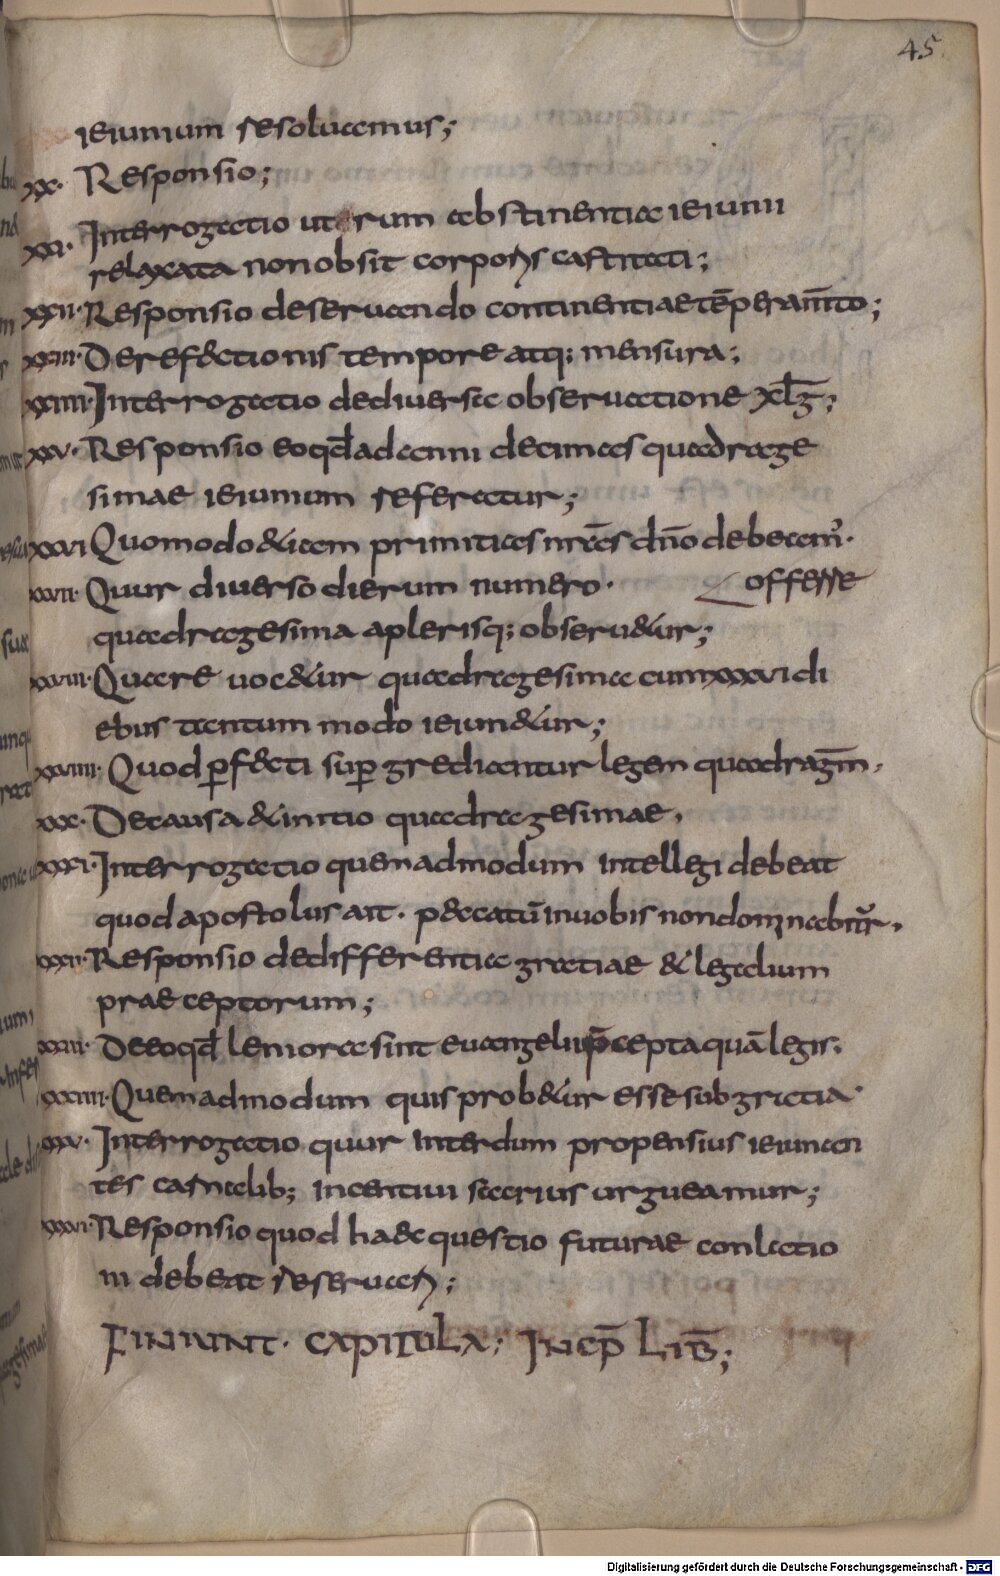 45
ieiunium resoluamus;
xx. Responsio;
xxi. Interrogatio utrum abstinentiae ieiunii
relaxata non obsit corporis castitati;
xxii. Responsio deseruando continentiae tēperam̄to;
xxiii. De refectionis tempore atq; mensura;
xxiiii. Interrogatio dediuersa obseruatione xlḡ;
xxv. Responsio eoqđ ad anni decimas quadrage
simae ieiunium referatur;
xxvi Quomodo &iam primitias nr̄as dn̄o debeam'.
xxvii. Quur diuerso dierum numero.
offerre
quadragesima aplerisq; obseru&ur;
xxviii. Quare uoc&ur quadragesima cum xxxvi di
ebus tantum modo ieiun&ur;
xxviiii. Quod ꝑf&cti suꝑgrediantur legem quadragm̄.
xxx. Decausa &initio quadragesimae.
xxxi. Interrogatio quemadmodum intellegi debeat
quod apostolus ait. p&catū inuobis nondominabit̄ur.
xxxii. Responsio dedifferentia gratiae & legalium
praeceptorum;
xxxiii. Deeoqđ leniora sint euangelii p̄cepta quā legis.
xxxiiii. Quemadmodum quis prob&ur esse sub gratia
xxxv. Interrogatio quur interdum propensius ieiunan
tes carnalib; incentiui acrius urgueamur;
xxxvi. Responsio quod haec questio futurae conlatio
ni debeat reseruari;
FINIUNT. CAPITULA; INCP̄ LIB̄;
Digitalisierung gefördert durch die Deutsche Forschungsgemeinschaft - DFG